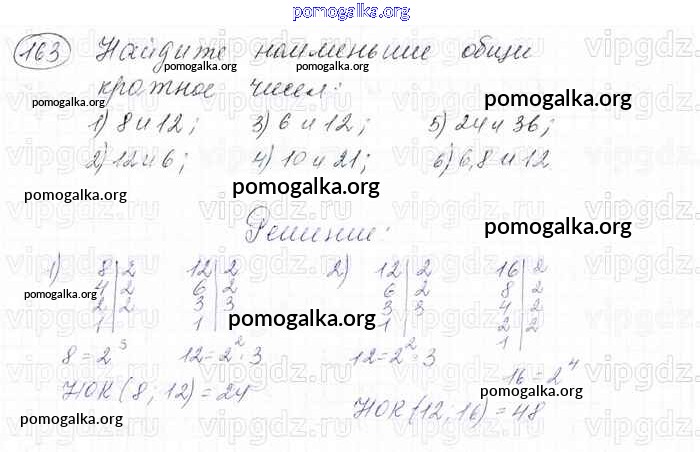 pomogalka.org
163 Найдите наименьшие общи
pomogalka.org pomogalka.org
кратное чисел:
pomogalka.org pomogalka.org
1) 8 и 12; 3) 6 и 12; 5) 24 и 36;
2) 12 и 6; 4) 10 и 21; 6) 6, 8 и 12
pomogalka.org pomogalka.org
pomogalka.org
Решение:
1) 8|2 12|2 2) 12|2 16|2
4|2 6|2 6|2 8|2
2|2 3|3 3|3 4|2
1 1 1 2|2
1
pomogalka.org pomogalka.org
8 = 2³ 12 = 2² · 3 12 = 2² · 3
16 = 2⁴
НОК (8; 12) = 24
pomogalka.org
НОК (12; 16) = 48
pomogalka.org pomogalka.org
vipgdz.ru